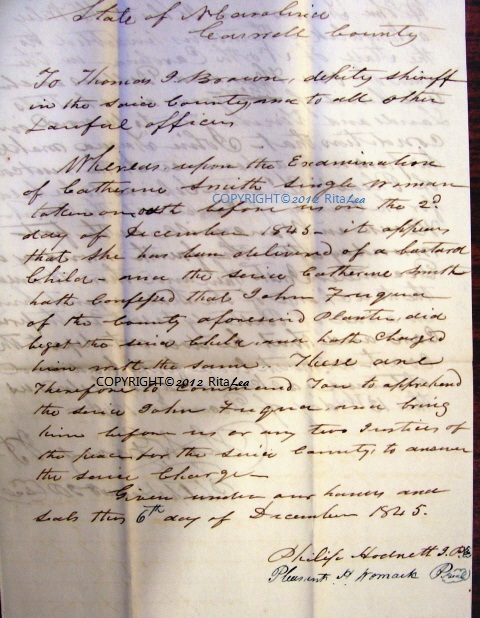 State of N Carolina
Caswell County
To Thomas J. Brown, deputy sheriff
in the said County and to all other
Lawful officers
Whereas upon the Examination
of Catherine Smith Single Woman
COPYRIGHT©2012 RitaLea
taken on oath before us on the 2d
day of December 1845 - it appears
that she has been delivered of a bastard
Child - and the said Catherine Smith
hath Confessed that John Fuqua
of the County aforesaid Planter, did
beget the said Child, and hath Charged
him with the same. These are
COPYRIGHT©2012 RitaLea
Therefore to Command You to apprehend
the said John Fuqua and bring
him before us or any two Justices of
the peace for the said County, to answer
the said Charge
Given under our hands and
seals this 6th day of December 1845.
Philip Hodnett J.P.
Pleasant H Womack